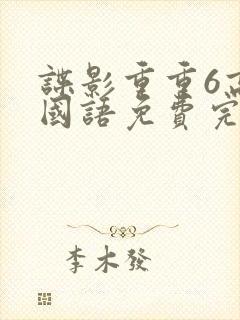 諜影重重6高
國語免費完
李木發